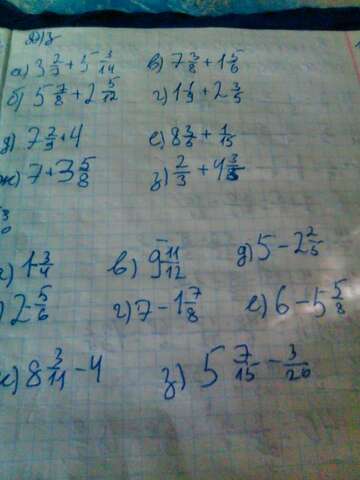 Д/з
а) 3 2/7 + 5 3/14 в) 7 3/8 + 1 5/6
б) 5 7/8 + 2 5/12 г) 1 1/9 + 2 3/5
д) 7 2/9 + 4 е) 8 3/5 + 1/15
ж) 7 + 3 5/8 з) 2/3 + 4 3/8
1 3/4 в) 9 11/12 д) 5 - 2 2/5
) 2 5/6 г) 7 - 1 7/8 е) 6 - 5 5/8
) 8 3/11 - 4 з) 5 7/15 - 3/20